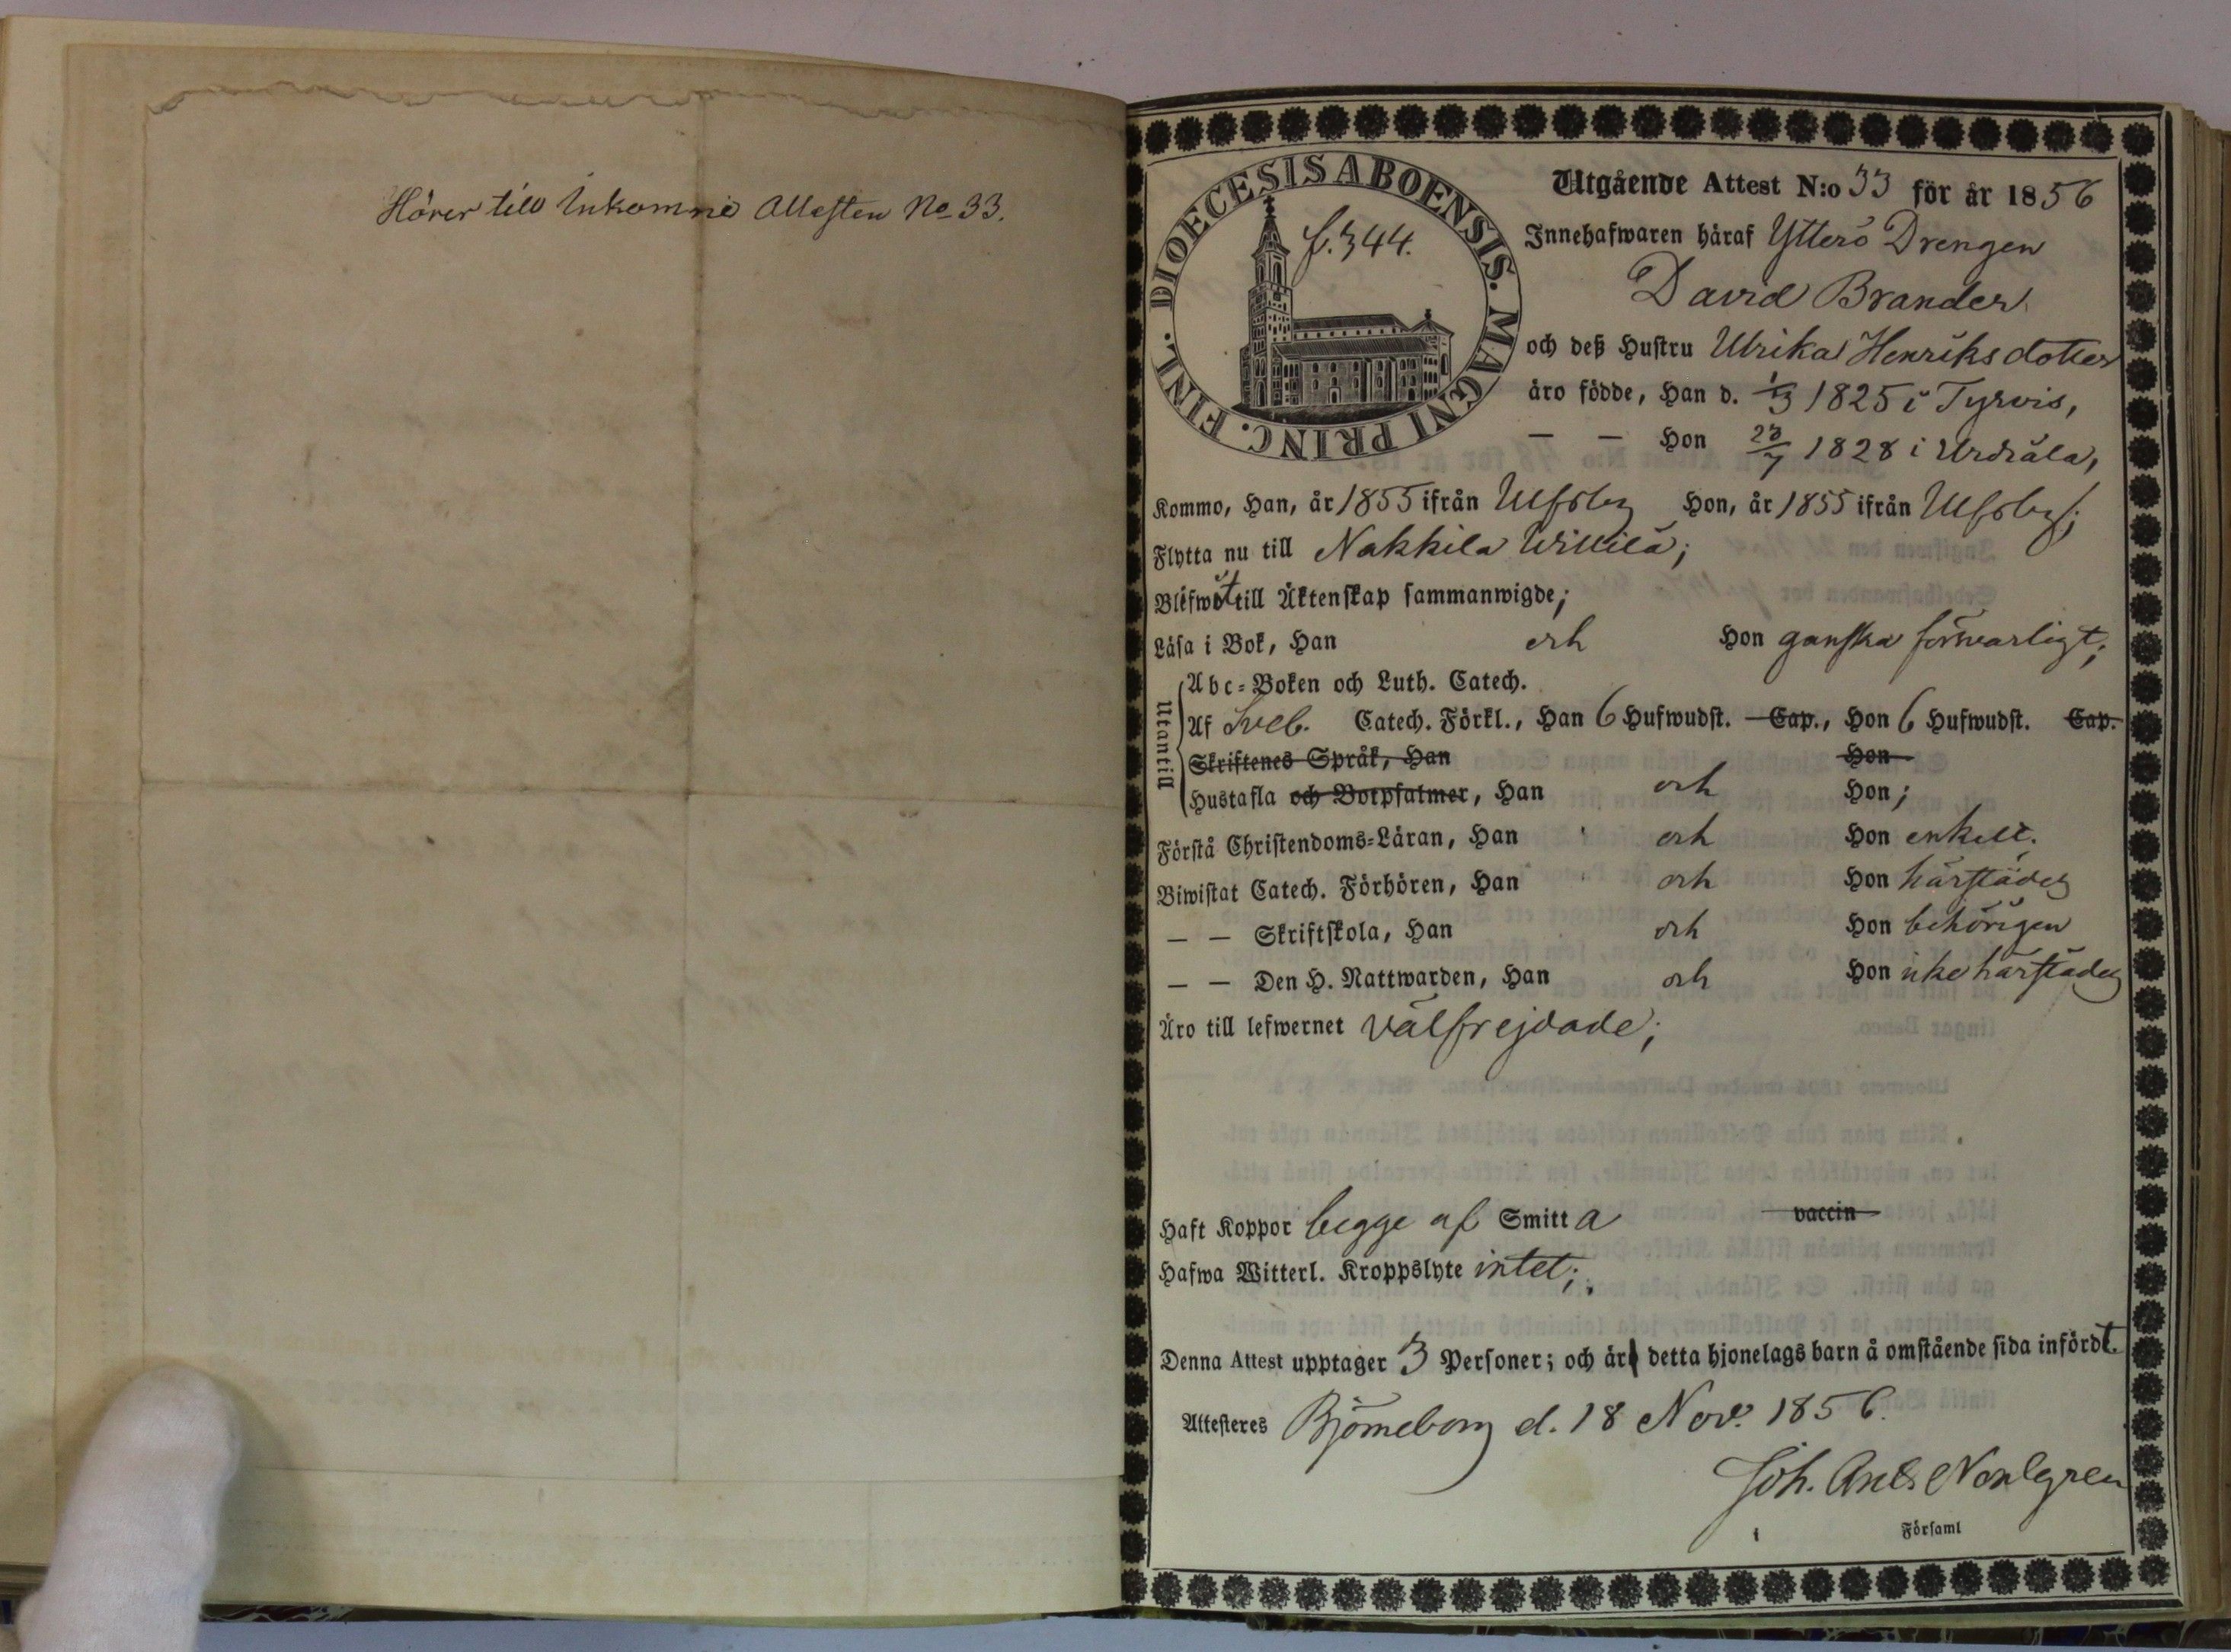 Hörer till Inkomne Attesten No 33.
DIOECESIS ABOENSIS. MAGNI PRINC. FINL.
f. 344.
Utgående Attest N:o 33 för år 1856
Innehafwaren häraf Ytterö Drengen
David Brander
och deß Hustru Ulrika Henriksdotter
äro födde, Han d. 1/3 1825 i Tyrvis,
— — Hon 28/7 1828 i Urdiala,
Kommo, Han, år 1855 ifrån Ulfsby Hon, år 1855 ifrån Ulfsby;
Flytta nu till Nakkila Willilä;
Blefwo till Äktenskap sammanwigde;
Läsa i Bok, Han och Hon ganska försvarligt;
Utantill
Abc-Boken och Luth. Catech.
Af Sveb. Catech. Förkl., Han 6 Hufwudst. Cap., Hon 6 Hufwudst. Cap.
Skriftenes Språk, Han Hon
Hustafla och Botpsalmer, Han och Hon;
Förstå Christendoms-Läran, Han och Hon enkelt.
Biwistat Catech. Förhören, Han och Hon härstädes
— — Skriftskola, Han och Hon behörigen
— — Den H. Nattwarden, Han och Hon icke härstädes
Äro till lefwernet välfrejdade;
Haft Koppor begge af Smitta vaccin
Hafwa Witterl. Kroppslyte intet;
Denna Attest upptager 3 Personer; och är detta hjonelags barn å omstående sida infördt.
Attesteres Björneborg d. 18 Nov. 1856.
Joh. Axel Nordgren
i Församl